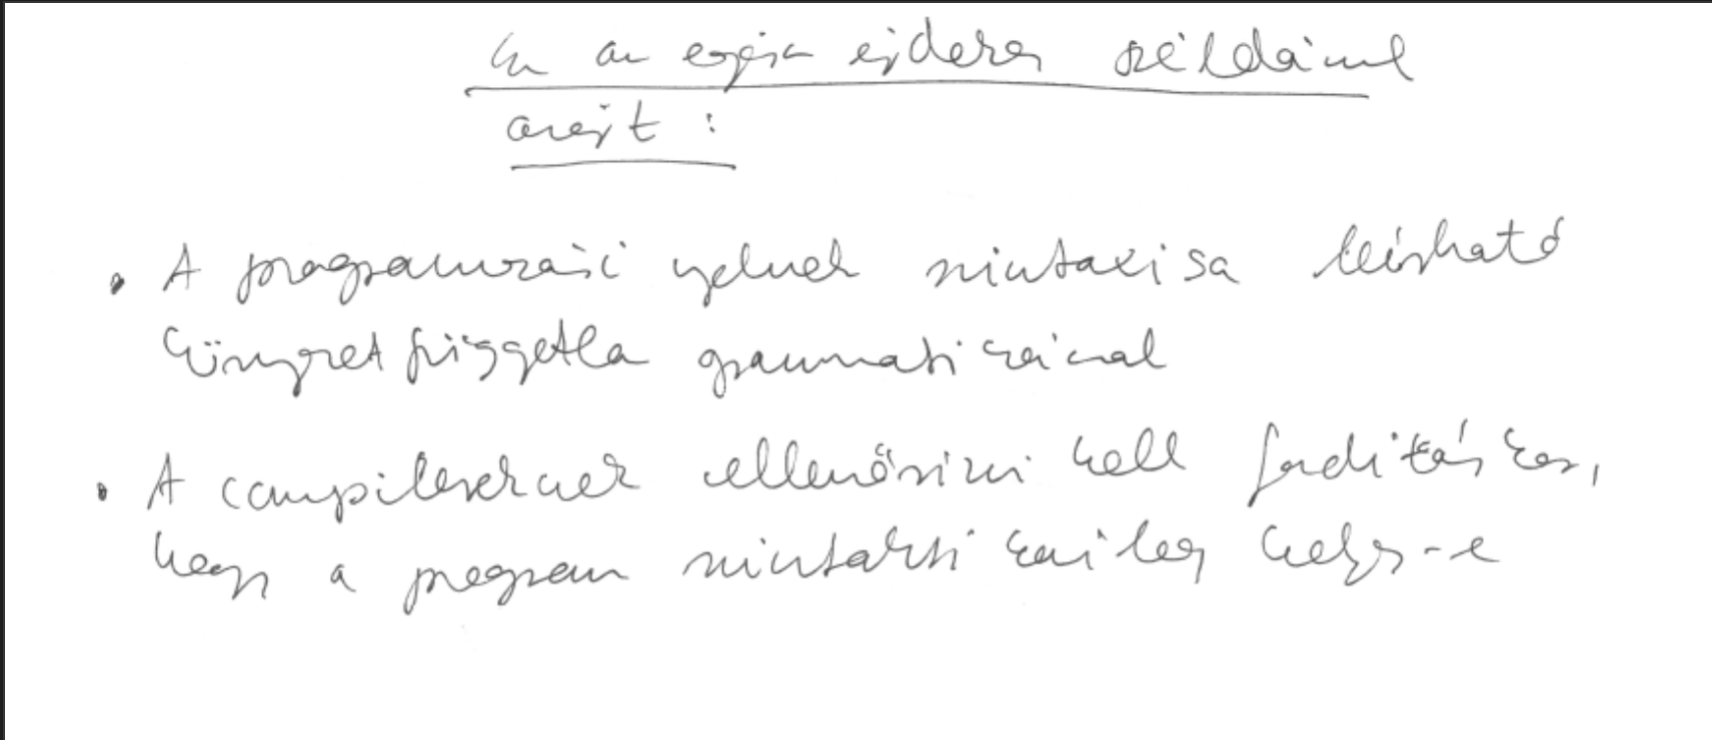 Ez az egész érdekes számunkra
azért :
• A programozási nyelvek szintaxisa leírható
környezetfüggetlen grammatikával
• A compilereknek ellenőrizni kell fordításkor,
hogy a program szintaktikailag helyes-e